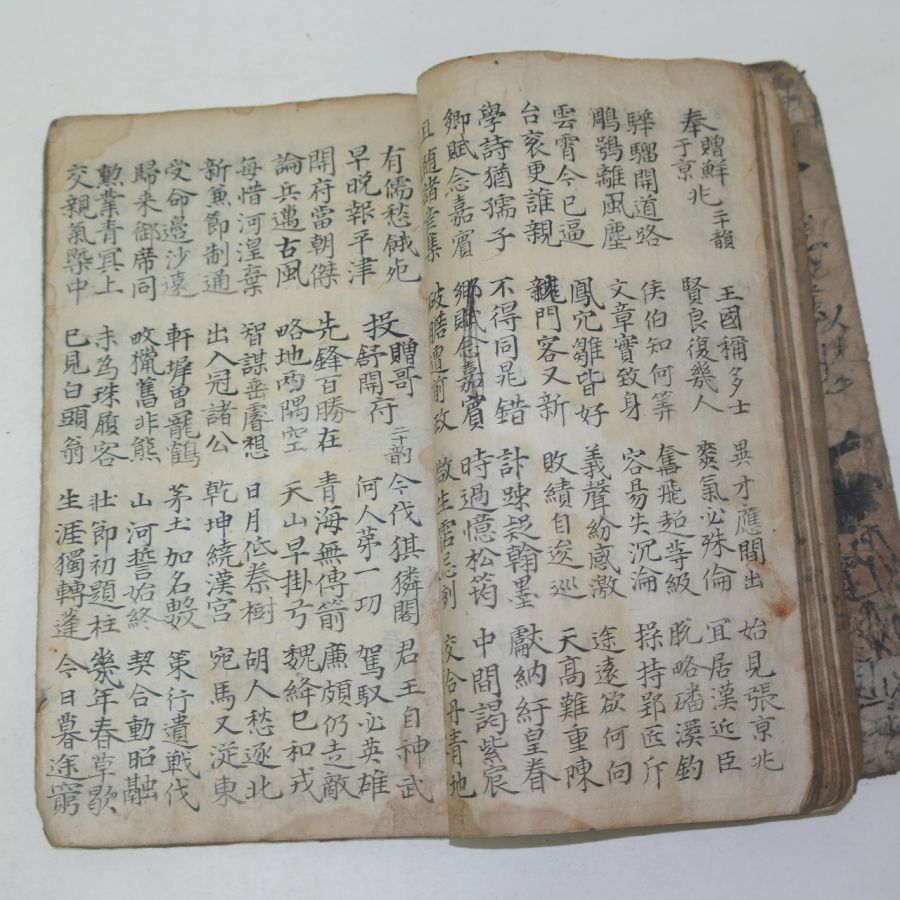 奉贈鮮于京兆二十韻
王國稱多士
賢良復幾人
異才應間出
爽氣必殊倫
始見張京兆
宜居漢近臣
驊騮開道路
鵰鶚離風塵
侯伯知何筭
文章實致身
奮飛超等級
容易失沉淪
脫略磻溪釣
操持郢匠斤
雲霄今已逼
台衮更誰親
鳳穴雛皆好
門客又新
義聲紛感激
敗績自逡巡
途遠欲何向
天高難重陳
學詩猶孺子
鄉賦念嘉賓
不得同晁錯
鄉賦念嘉賓
計疎疑翰墨
時過憶松筠
獻納紆皇眷
中間謁紫宸
且隨諸彥集
破膽遭前政
生霑忌刻
交合丹青地
有儒愁餓死
早晚報平津
投贈哥舒開府二十韵
今伐猉獜閣
何人苐一功
君王自神武
駕馭必英雄
開府當朝傑
論兵邁古風
先鋒百勝在
略地兩隅空
青海無傳箭
天山早掛弓
廉頗仍走敵
魏絳已和戎
每惜河湟棄
新兼節制通
智謀垂睿想
出入冠諸公
日月低秦樹
乾坤繞漢宮
胡人愁逐北
宛馬又從東
受命邊沙遠
歸来御席同
軒墀曾寵鶴
畋獵舊非熊
茅土加名數
山河誓始終
策行遺戰伐
契合動昭融
勲業青冥上
交親氣槩中
未爲珠履客
已見白頭翁
壯節初題柱
生涯獨轉蓬
幾年春草歇
今日暮途窮